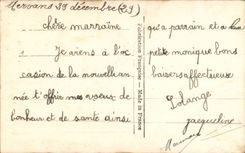 Mervans 29 décembre (39)
chère marraine
Je viens à l'oc
casion de la nouvelle an
née t'offrir mes voeux de
bonheur et de santé ainsi
Fabrication Française - Made in France
qu'a parrain et a la
petite monique bons
baisers affectueux
Solange
jacqueline